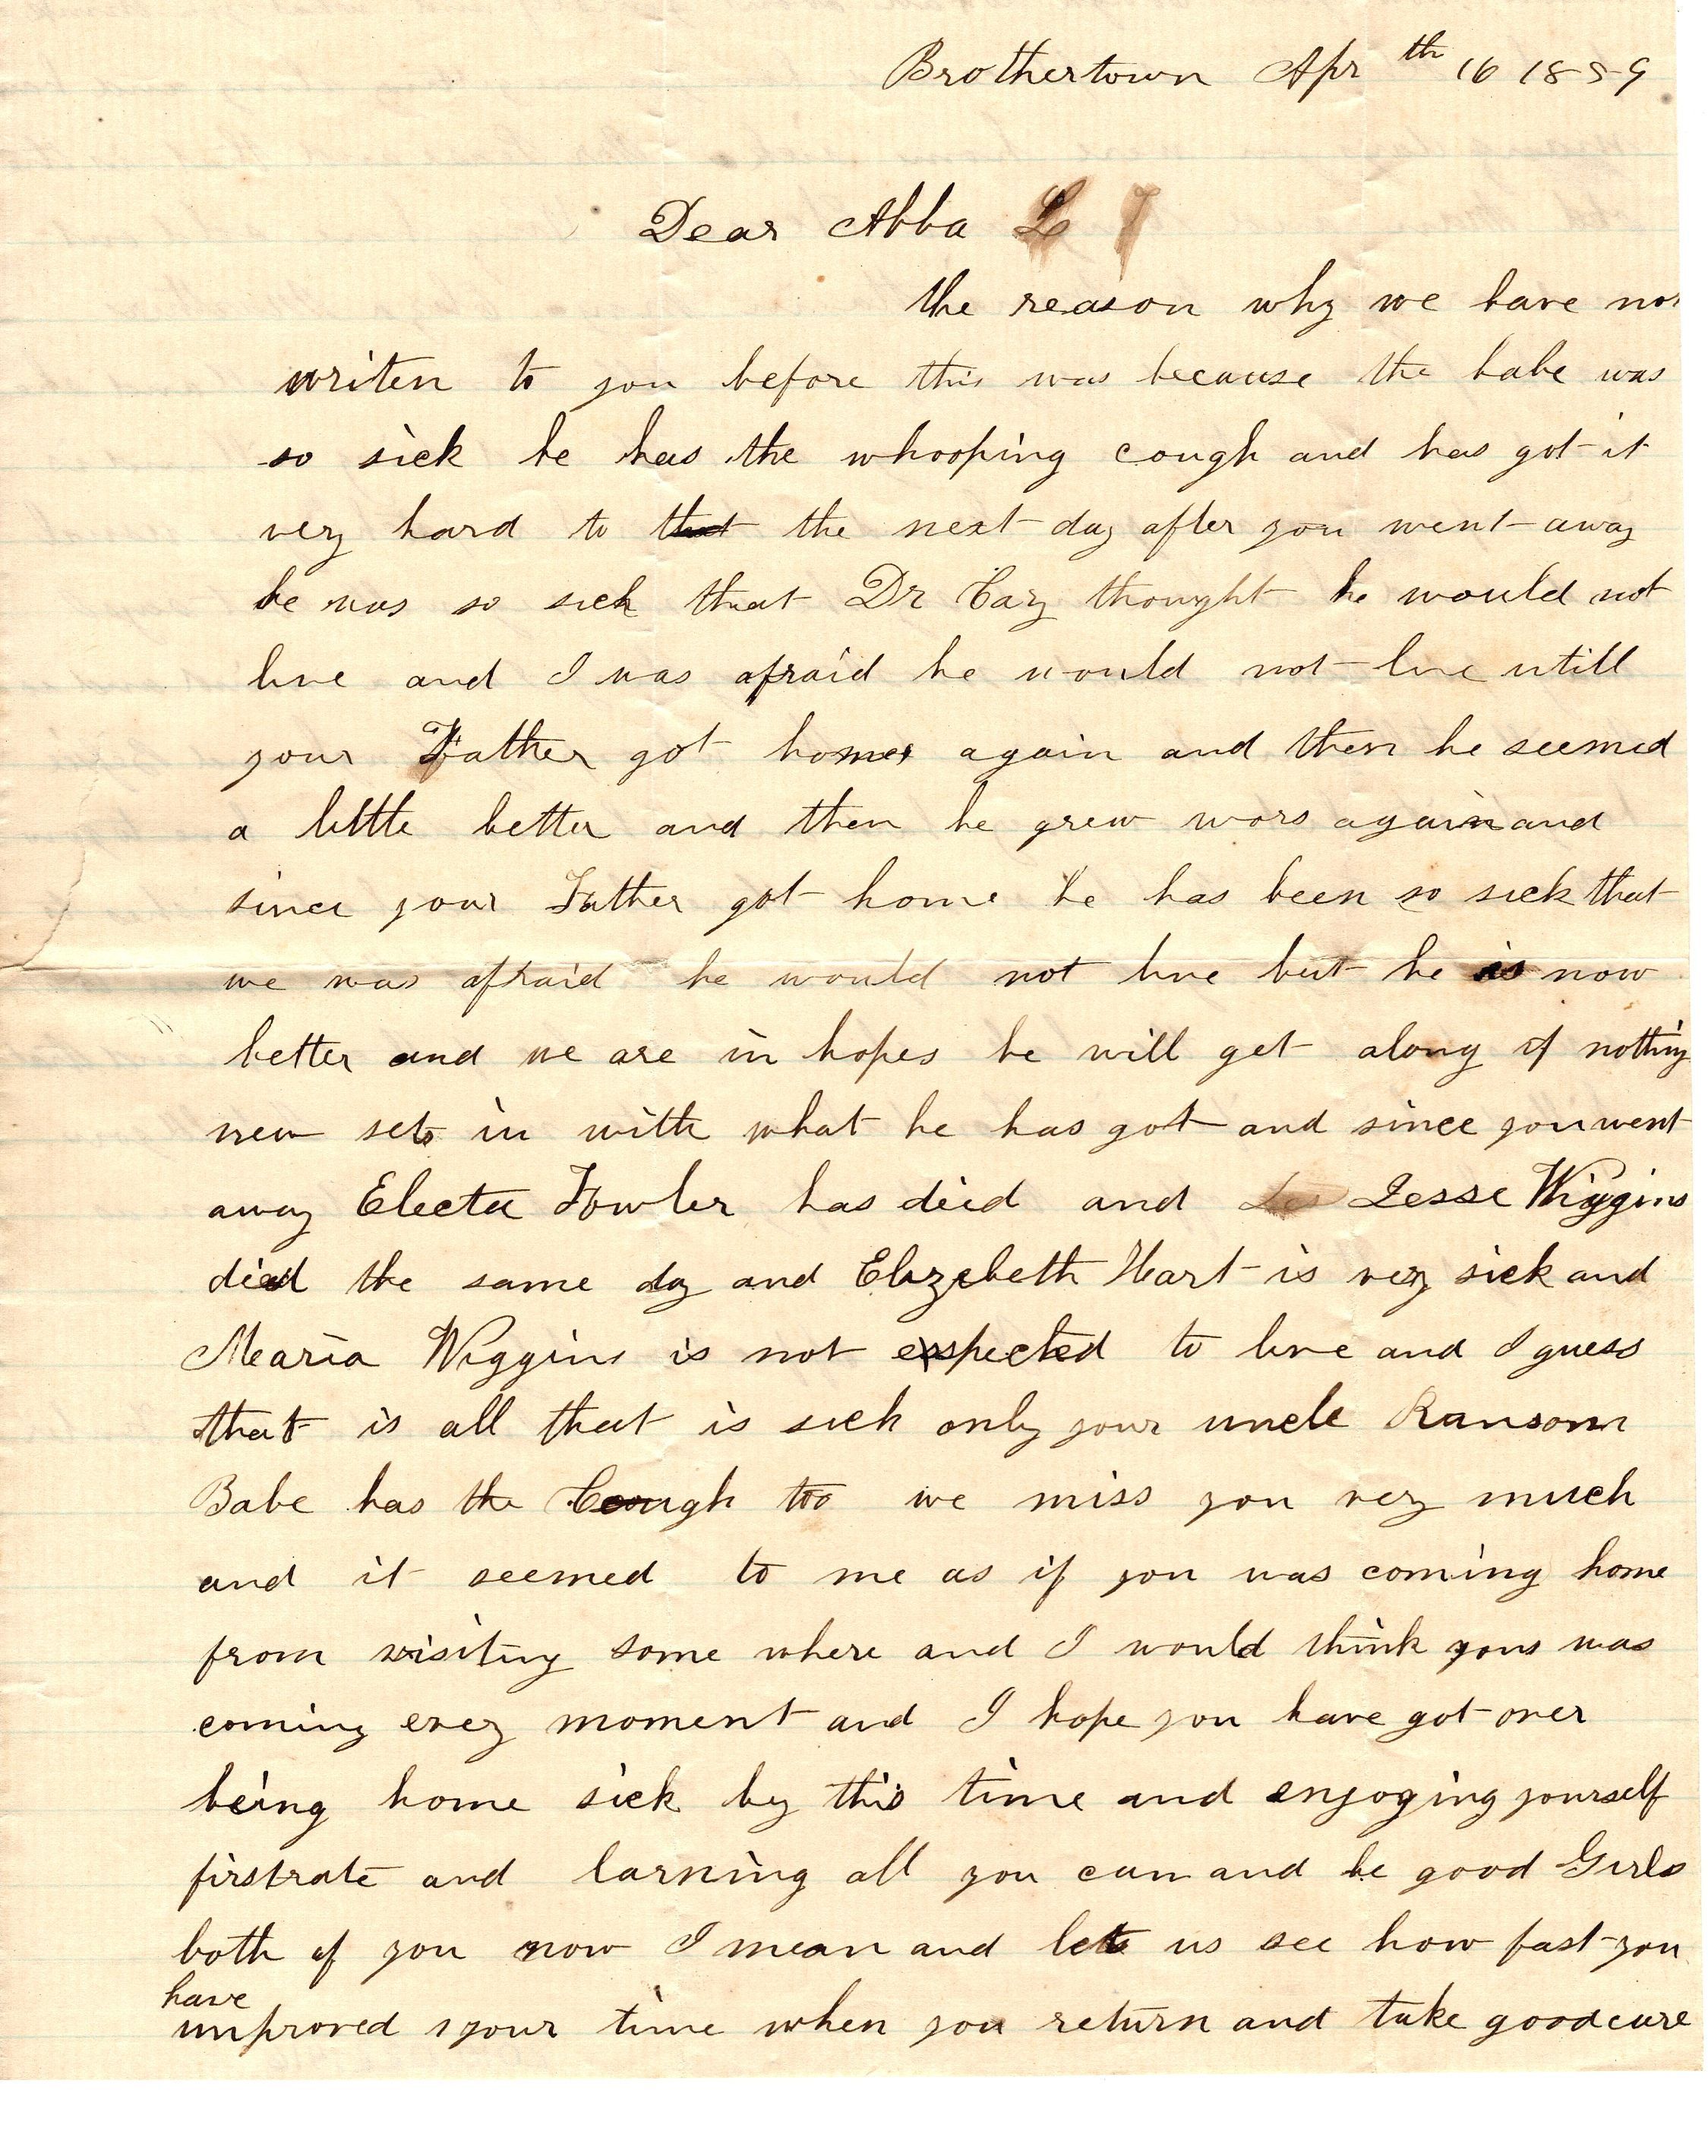 Brothertown Apr th 16 1859
Dear Abba L
the reason why we have not
writen to you before this was because the babe was
so sick he has the whooping cough and has got it
very hard to that the next day after you went away
he was so sick that Dr Cary thought he would not
live and I was afraid he would not live utill
your Father got home again and then he seemed
a little better and then he grew wors again and
since your Father got home he has been so sick that
we was afraid he would not live but he is now
better and we are in hopes he will get along if nothing
new sets in with what he has got and since you went
away Electa Fowler has died and Les Lesse Wiggins
died the same day and Elizebeth Hart is very sick and
Maria Wiggins is not expected to live and I guess
that is all that is sick only your uncle Ransom
Babe has the Cough too we miss you very much
and it seemed to me as if you was coming home
from visiting some where and I would think you was
coming every moment and I hope you have got over
being home sick by this time and enjoying yourself
firstrate and larning all you can and be good Girls
both of you now I mean and let us see how fast you
have
improved your time when you return and take good care